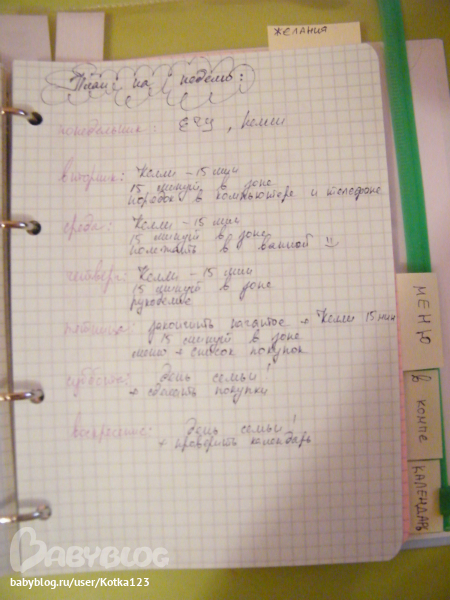 ЖЕЛАНИЯ
План на неделю:
понедельник: ЕЧУ, Келли
вторник: Келли - 15 мин
15 минут в зоне
порядок в компьютере и телефоне
среда: Келли - 15 мин
15 минут в зоне
полежать в ванной !!
четверг: Келли - 15 мин
15 минут в зоне
рукоделие
пятница: закончить начатое + Келли 15 мин
15 минут в зоне
меню + список покупок
суббота: День семьи!
+ сделать покупки
воскресение: День семьи!
+ проверить календарь
МЕНЮ
В КОМПЕ
КАЛЕНДАРЬ
BABYBLOG
babyblog.ru/user/Kotka123